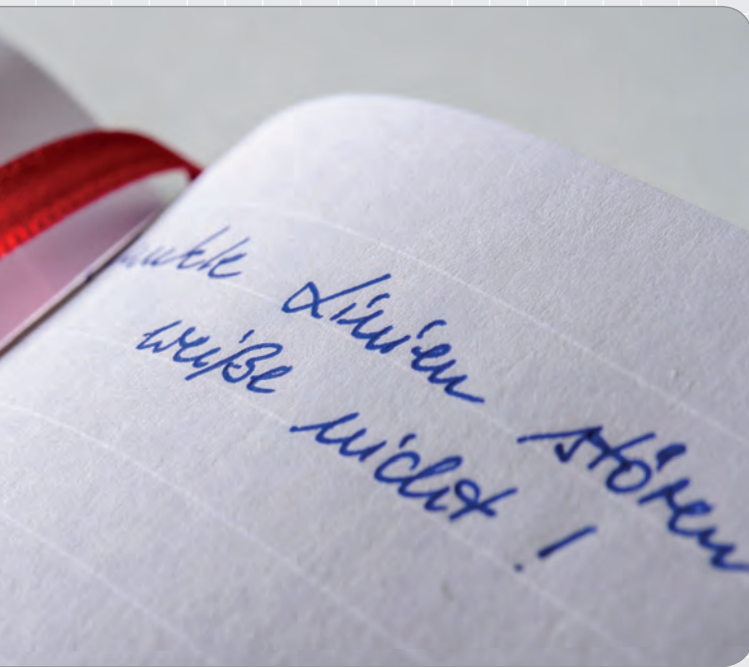 Linien stören
weiße nicht!